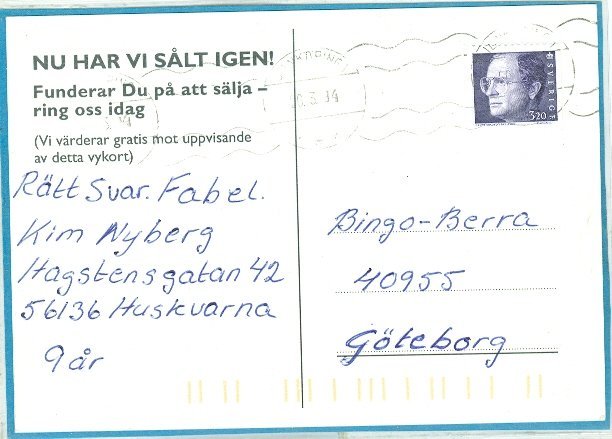 NU HAR VI SÅLT IGEN!
Funderar Du på att sälja –
ring oss idag
(Vi värderar gratis mot uppvisande
av detta vykort)
Rätt Svar. Fabel.
Kim Nyberg
Hagstensgatan 42
56136 Huskvarna
9 år
SVERIGE
320
Bingo-Berra
40955
Göteborg